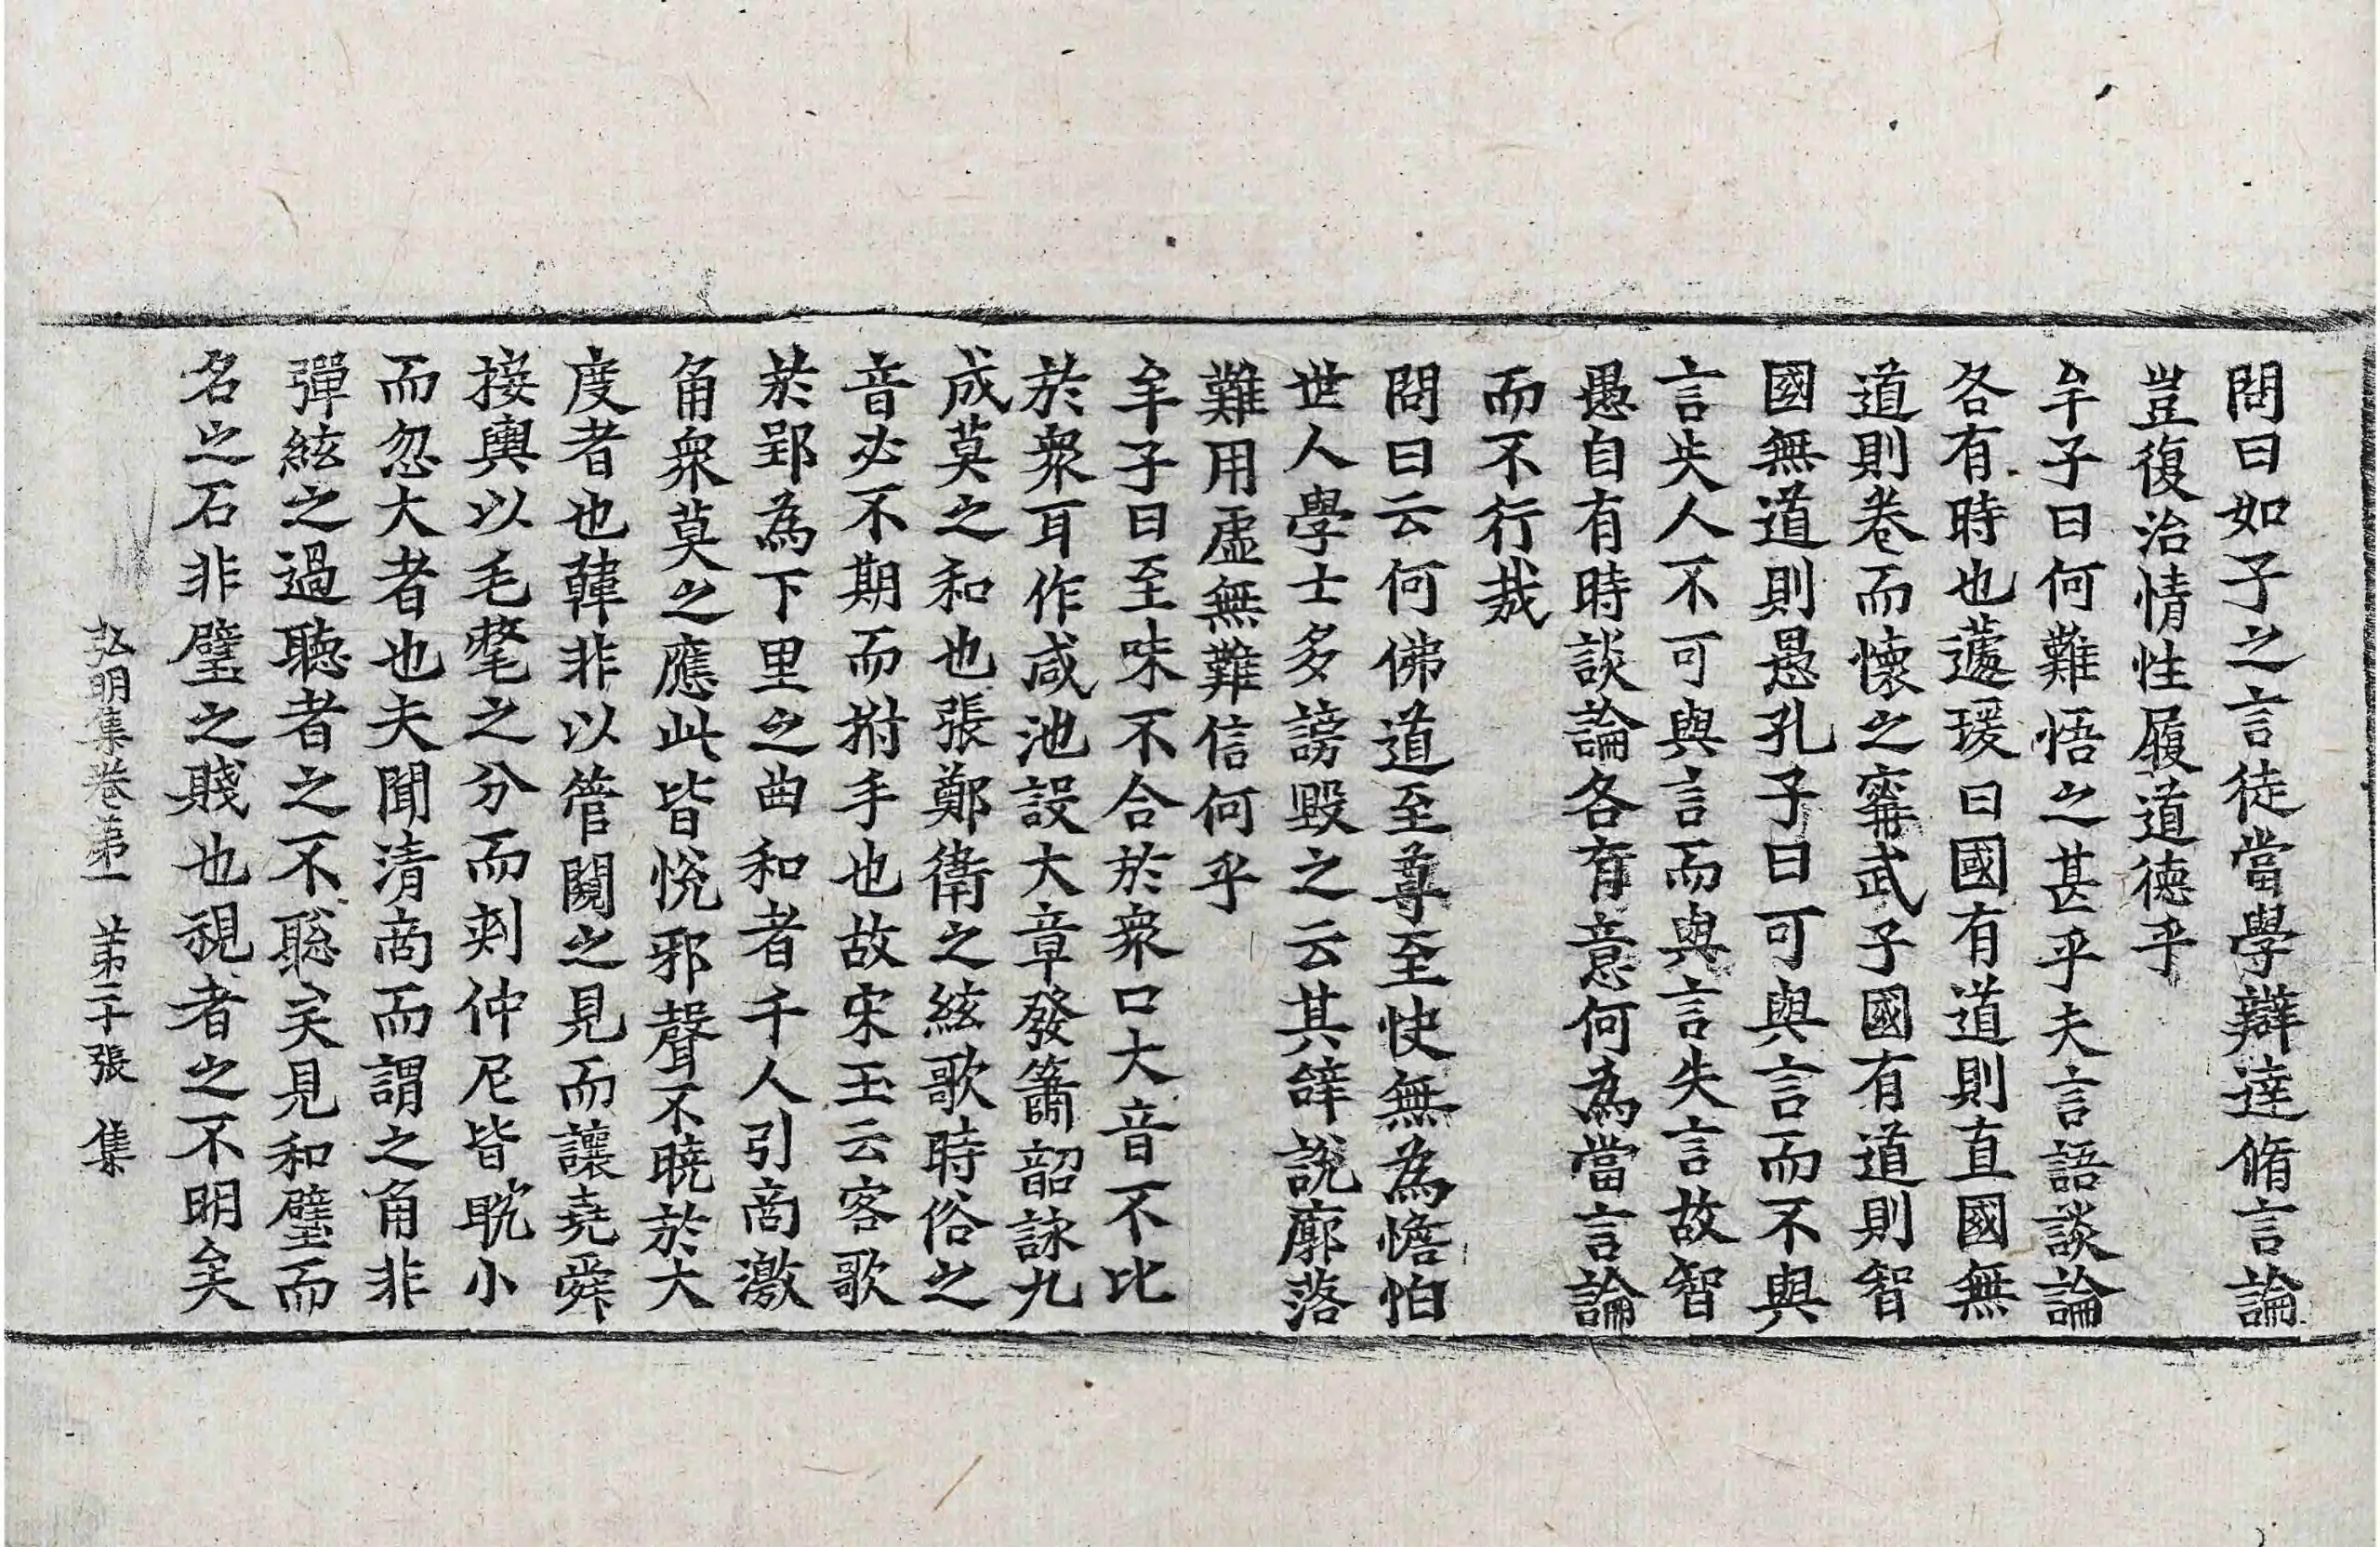 問曰如子之言徒當學辯達脩言論
豈復治情性履道德乎
牟子曰何難悟之甚乎夫言語談論
各有時也蘧瑗曰國有道則直國無
道則卷而懷之甯武子國有道則智
國無道則愚孔子曰可與言而不與
言失人不可與言而與言失言故智
愚自有時談論各有意何為當言論
而不行哉
問曰云何佛道至尊至快無為憺怕
世人學士多謗毀之云其辭說廓落
難用虛無難信何乎
牟子曰至味不合於衆口大音不比
於衆耳作咸池設大章發簫韶詠九
成莫之和也張鄭衛之絃歌時俗之
音必不期而拊手也故宋玉云客歌
於郢為下里之曲和者千人引商激
角衆莫之應此皆悅邪聲不曉於大
度者也韓非以管闚之見而讓堯舜
接輿以毛氂之分而刾仲尼皆耽小
而忽大者也夫聞清商而謂之角非
彈絃之過聽者之不聡矣見和璧而
名之石非璧之賤也視者之不明矣
弘明集卷第一 第二十張 集